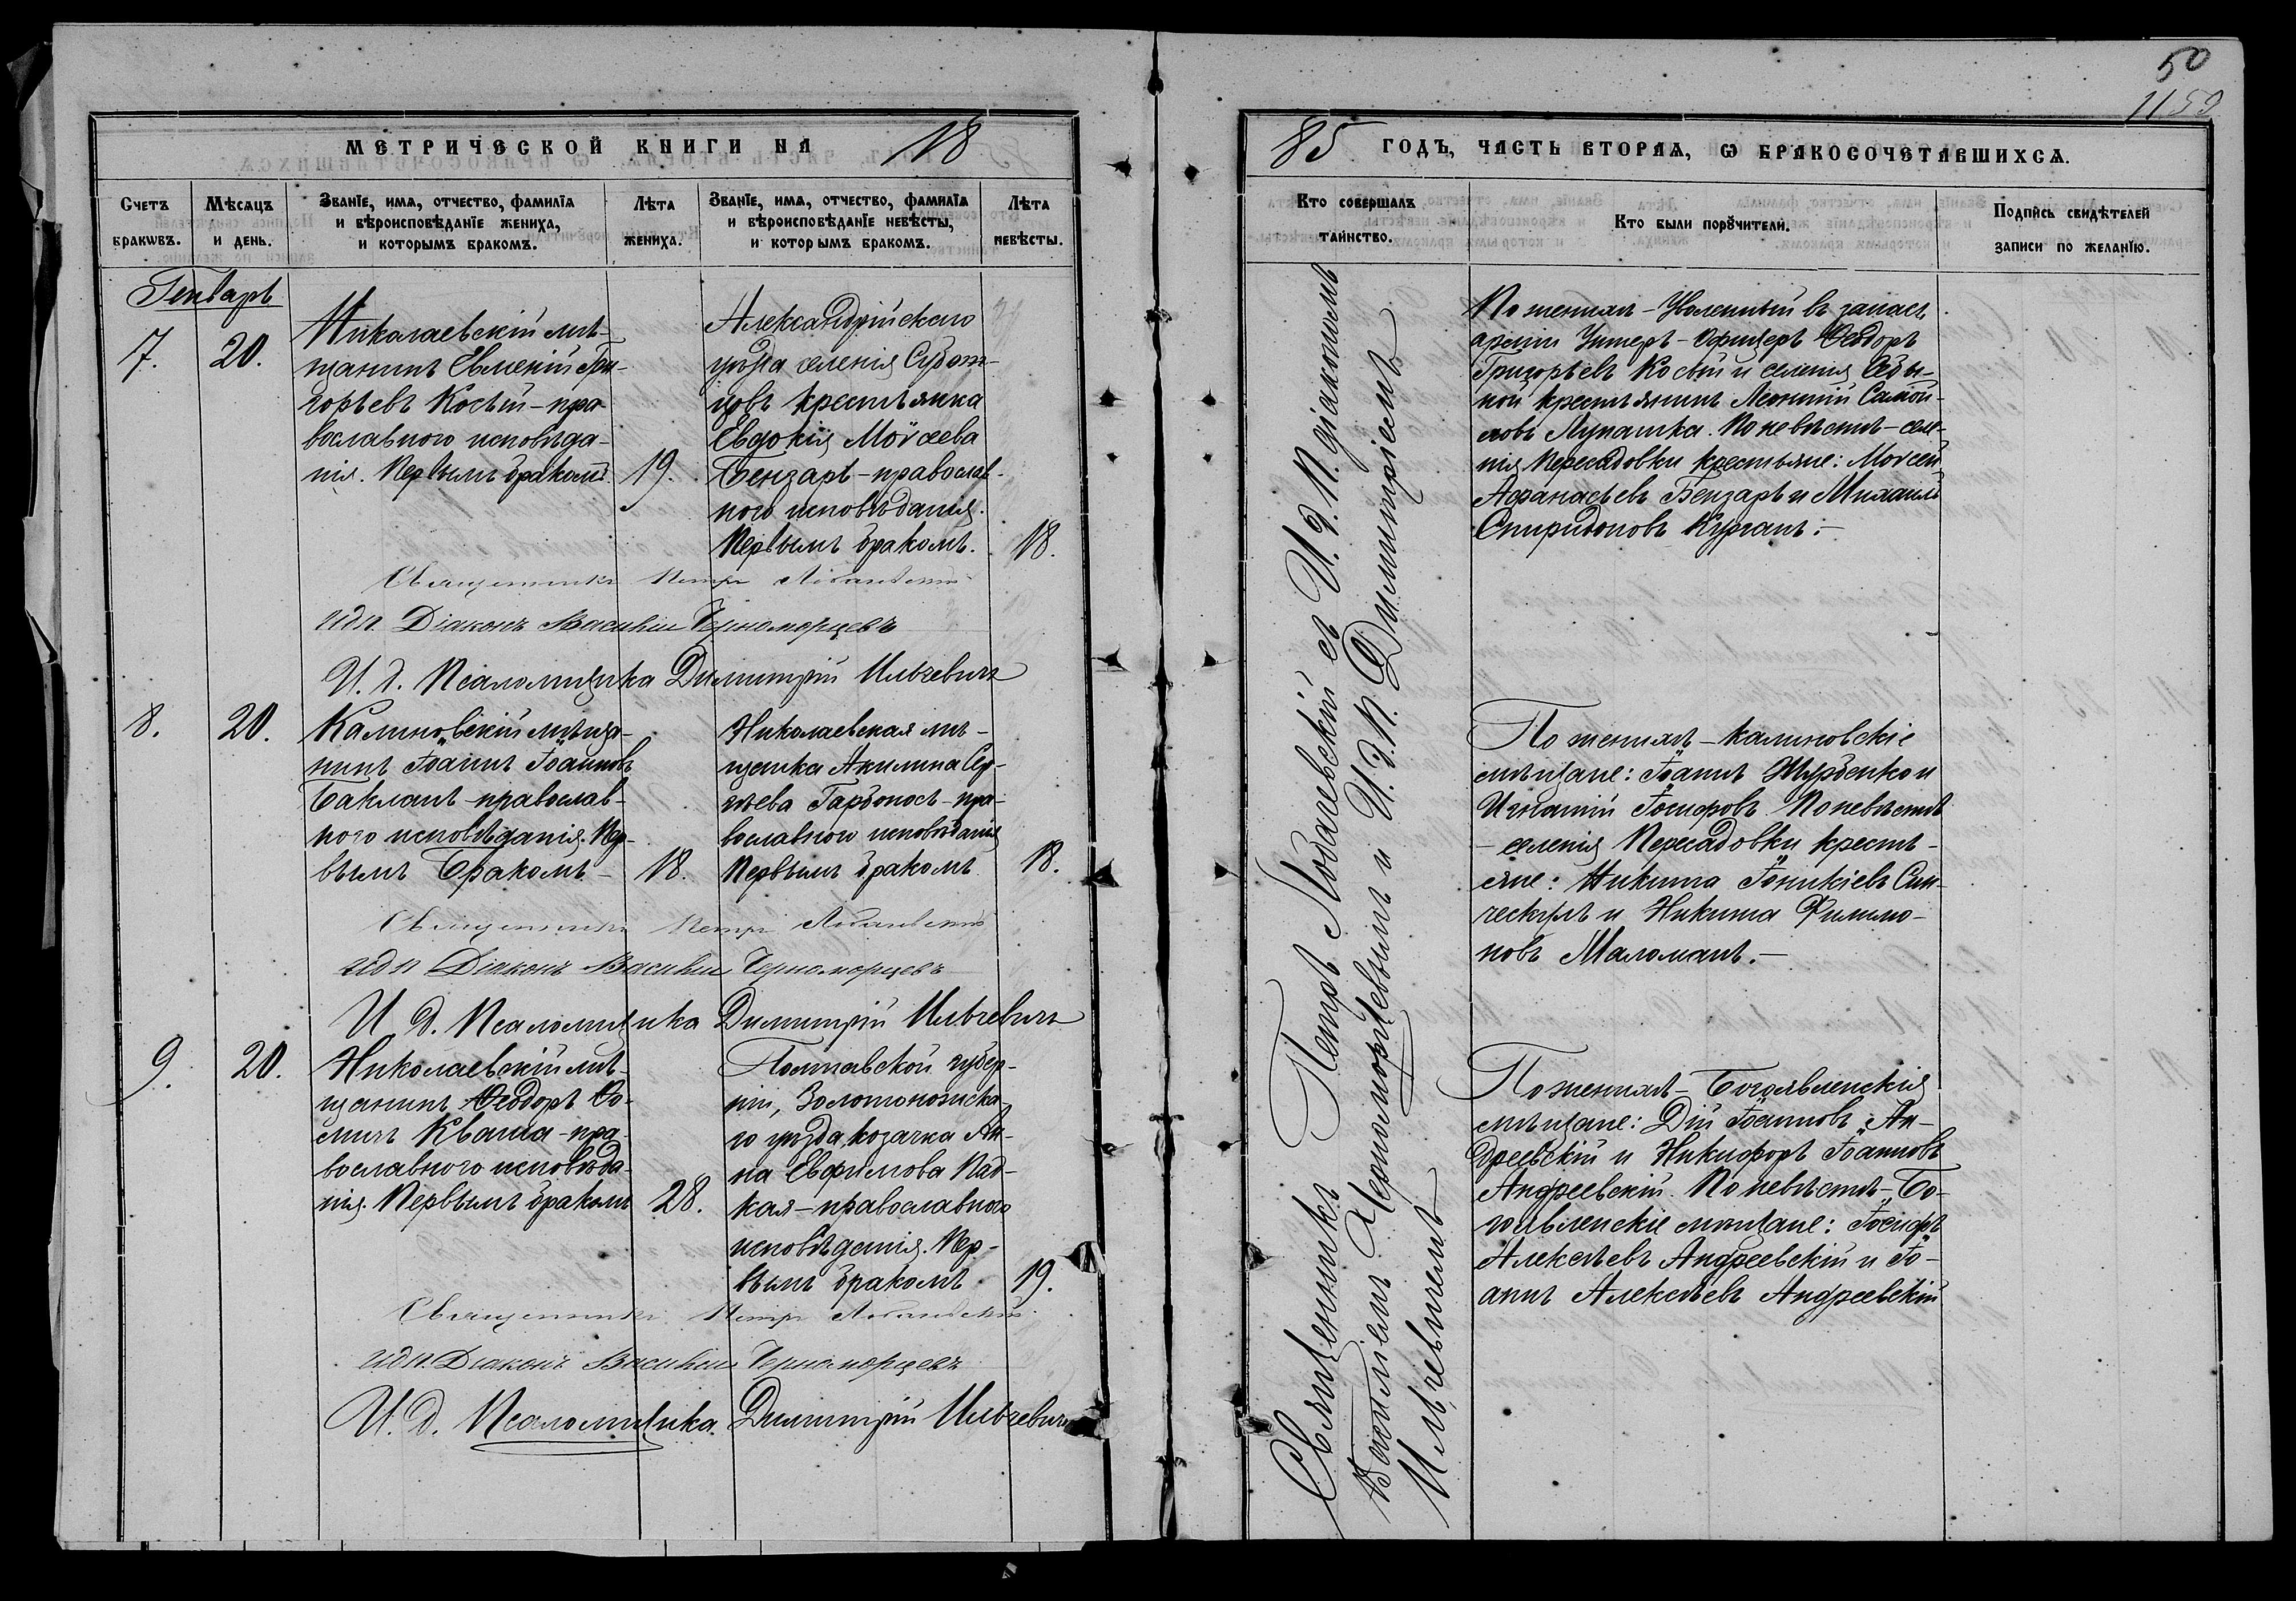 50
1159
МЕТРИЧЕСКОЙ КНИГИ НА 18
85 ГОДЪ, ЧАСТЬ ВТОРАѦ, Ѡ БРАКОСОЧЕТАВШИХСѦ.
Счетъ браковъ.
Мѣсяцъ и день.
Званіе, имя, отчество, фамилія
и вѣроисповѣданіе жениха,
и которымъ бракомъ.
Лѣта жениха.
Званіе, имя, отчество, фамилія
и вѣроисповѣданіе невѣсты,
и которымъ бракомъ.
Лѣта невѣсты.
Кто совершалъ таинство.
Кто были поручители.
Подпись свидѣтелей
записи по желанію.
Генварь
7.
20.
Николаевскій мѣ-
щанинъ Евменій Гри-
горьевъ Косѣй - пра-
вославного исповѣда-
нія. Первымъ бракомъ.
19.
Александрійского
уѣзда селенія Субот-
цовъ крестьянка
Евдокія Моѵсеева
Бензарь - православ-
ного исповѣданія.
Первымъ бракомъ.
18.
Священникъ Петръ
идп. Діаконъ Василій Черноморцевъ
И. д. Псаломщика Димитрій Ильчевичъ
8.
20.
Калиновскій мѣща-
нинъ Іоаннъ Іоанновъ
Бакланъ - православ-
ного исповѣданія. Пер-
вымъ Бракомъ -
18.
Николаевская мѣ-
щанка Акилина Сер-
гѣева Гарбоносъ - пра-
вославного исповѣданія
Первымъ бракомъ
18.
Священникъ Петръ
идп Діаконъ Василій Черноморцевъ
И. д. Псаломщика Димитрій Ильчевичъ
9.
20.
Николаевскій мѣ-
щанинъ Ѳеодоръ Ѳо-
мичъ Кваша - пра-
вославного исповѣда-
нія. Первымъ бракомъ
28.
Полтавской губер-
ніи, Золотоношска-
го уѣзда козачка Ан-
на Евфимова Пад-
кая - православного
исповѣданія. Пер-
вымъ бракомъ
19.
Священникъ Петръ
идп. Діаконъ Василій Черноморцевъ
И. д. Псаломщика Димитрій Ильчевичъ
Священникъ Петръ Лобачевскій съ И. д. П. діакономъ
Василіемъ Черноморцевымъ и И. д. П. Димитріемъ
Ильчевичемъ
По женихѣ - Уволенный въ запасъ
арміи Унтеръ-Офицеръ Ѳеодоръ
Григорьевъ Косѣй и селенія
крестьянинъ Леонтій Самой-
ловъ Лупашка. По невѣстѣ - селе-
нія Пересадовки крестьяне: Моѵсей
Афанасьевъ Бензарь и Михаилъ
Спиридоновъ Курганъ. -
По женихѣ - калиновскіе
мѣщане: Іоаннъ Журбенко и
Игнатій Іосифовъ. По невѣстѣ
- селенія Пересадовки кресть-
яне: Никита Іоникіевъ Син-
и Никита Филимо-
новъ Маломанъ. -
По женихѣ - Богоявленскія
мѣщане: Дій Іоанновъ Ан-
дреевскій и Никифоръ Іоанновъ
Андреевскій. По невѣстѣ - Бо-
гоявленскіе мѣщане: Іосифъ
Алексѣевъ Андреевскій и Іо-
аннъ Алексѣевъ Андреевскій